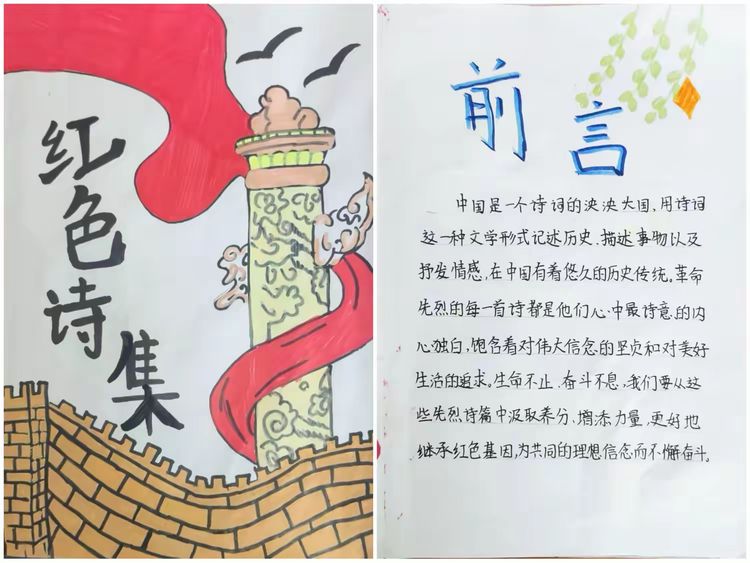 红色诗集
前言
中国是一个诗词的泱泱大国,用诗词
这一种文学形式记述历史、描述事物以及
抒发情感,在中国有着悠久的历史传统。革命
先烈的每一首诗都是他们心中最诗意的内
心独白,饱含着对伟大信念的坚贞和对美好
生活的追求。生命不止、奋斗不息,我们要从这
些先烈诗篇中汲取养分、增添力量,更好地
继承红色基因,为共同的理想信念而不懈奋斗。